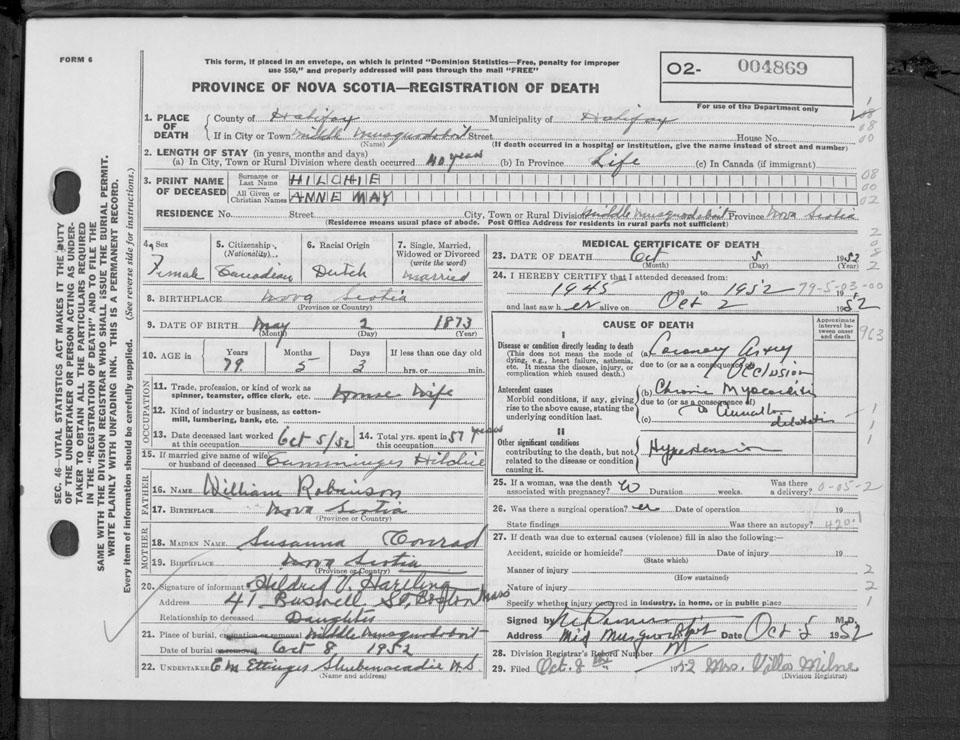 FORM 6
This form, if placed in an envelope, on which is printed "Dominion Statistics—Free, penalty for improper
use $50," and properly addressed will pass through the mail "FREE"
PROVINCE OF NOVA SCOTIA—REGISTRATION OF DEATH
O2- 004869
For use of the Department only
1. PLACE OF DEATH
County of Halifax Municipality of Halifax
If in City or Town Middle Musquodoboit Street House No.
(Name) (If death occurred in a hospital or institution, give the name instead of street and number)
2. LENGTH OF STAY (in years, months and days)
(a) In City, Town or Rural Division where death occurred 40 years (b) In Province Life (c) In Canada (if immigrant)
3. PRINT NAME OF DECEASED
Surname or Last Name HILCHIE
All Given or Christian Names ANNE MAY
RESIDENCE No. Street City, Town or Rural Division Middle Musquodoboit Province Nova Scotia
(Residence means usual place of abode. Post Office Address for residents in rural parts not sufficient)
4. Sex Female
5. Citizenship (Nationality) Canadian
6. Racial Origin Dutch
7. Single, Married, Widowed or Divorced (write the word) Married
8. BIRTHPLACE Nova Scotia
(Province or Country)
9. DATE OF BIRTH May 2 1873
(Month) (Day) (Year)
10. AGE in Years 79 Months 5 Days 3 If less than one day old hrs. or min.
OCCUPATION
11. Trade, profession, or kind of work as spinner, teamster, office clerk, etc. House Wife
12. Kind of industry or business, as cotton-mill, lumbering, bank, etc.
13. Date deceased last worked at this occupation Oct 5/52
14. Total yrs. spent in this occupation 57 years
15. If married give name of wife or husband of deceased Cumminges Hilchie
FATHER
16. NAME William Robinson
17. BIRTHPLACE Nova Scotia
(Province or Country)
MOTHER
18. MAIDEN NAME Susanna Conrad
19. BIRTHPLACE Nova Scotia
(Province or Country)
20. Signature of informant Hildred V. Hartling
Address 41 Buswell St, Boston Mass
Relationship to deceased Daughter
21. Place of burial, cremation or removal Middle Musquodoboit
Date of burial or removal Oct 8 1952
22. UNDERTAKER E M Ettinger Shubenacadie N.S.
(Name and address)
MEDICAL CERTIFICATE OF DEATH
23. DATE OF DEATH Oct 5 1952
(Month) (Day) (Year)
24. I HEREBY CERTIFY that I attended deceased from:
1945 19 to 1952 79-5-03-00 19
and last saw her alive on Oct 2 1952
CAUSE OF DEATH
Approximate interval between onset and death
I
Disease or condition directly leading to death
(This does not mean the mode of dying, e.g., heart failure, asthenia, etc. It means the disease, injury, or complication which caused death.)
(a) Coronary Artery
due to (or as a consequence of) Occlusion
Antecedent causes
Morbid conditions, if any, giving rise to the above cause, stating the underlying condition last.
(b) Chronic Myocarditis
due to (or as a consequence of)
(c) dilatation
II
Other significant conditions
contributing to the death, but not related to the disease or condition causing it.
Hypertension
25. If a woman, was the death associated with pregnancy? No Duration weeks. Was there a delivery? 0-05-2
26. Was there a surgical operation? no Date of operation 19
State findings Was there an autopsy? 420.1
27. If death was due to external causes (violence) fill in also the following:—
Accident, suicide or homicide? Date of injury 19
(State which)
Manner of injury
(How sustained)
Nature of injury
Specify whether injury occurred in industry, in home, or in public place
Signed by M.D.
Address Mid Musquodoboit Date Oct 5 1952
28. Division Registrar's Record Number
29. Filed Oct. 8 1952 Mrs. Villa Milne
(Division Registrar)
SEC. 46—VITAL STATISTICS ACT MAKES IT THE DUTY
OF THE UNDERTAKER OR PERSON ACTING AS UNDER-
TAKER TO OBTAIN ALL THE PARTICULARS REQUIRED
IN THE "REGISTRATION OF DEATH" AND TO FILE THE
SAME WITH THE DIVISION REGISTRAR WHO SHALL ISSUE THE BURIAL PERMIT.
WRITE PLAINLY WITH UNFADING INK. THIS IS A PERMANENT RECORD.
Every item of information should be carefully supplied. (See reverse side for instructions.)